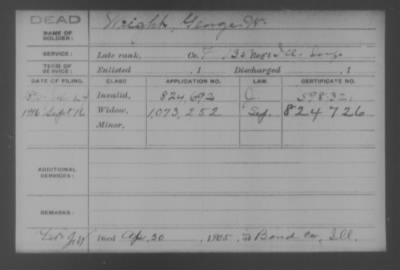 DEAD
NAME OF SOLDIER: Wright, George W.
SERVICE: Late rank, Co. F, 134 Regt Ill. Inf.
TERM OF SERVICE: Enlisted , 1 Discharged , 1
DATE OF FILING. CLASS APPLICATION NO. LAW. CERTIFICATE NO.
Invalid, 824,692 C. 598,321
1916 Sept 16 Widow, 1,073,252 Sep. 824,726
Minor,
ADDITIONAL SERVICES:
REMARKS:
Died Apr. 30, 1905, at Bond Co, Ill.